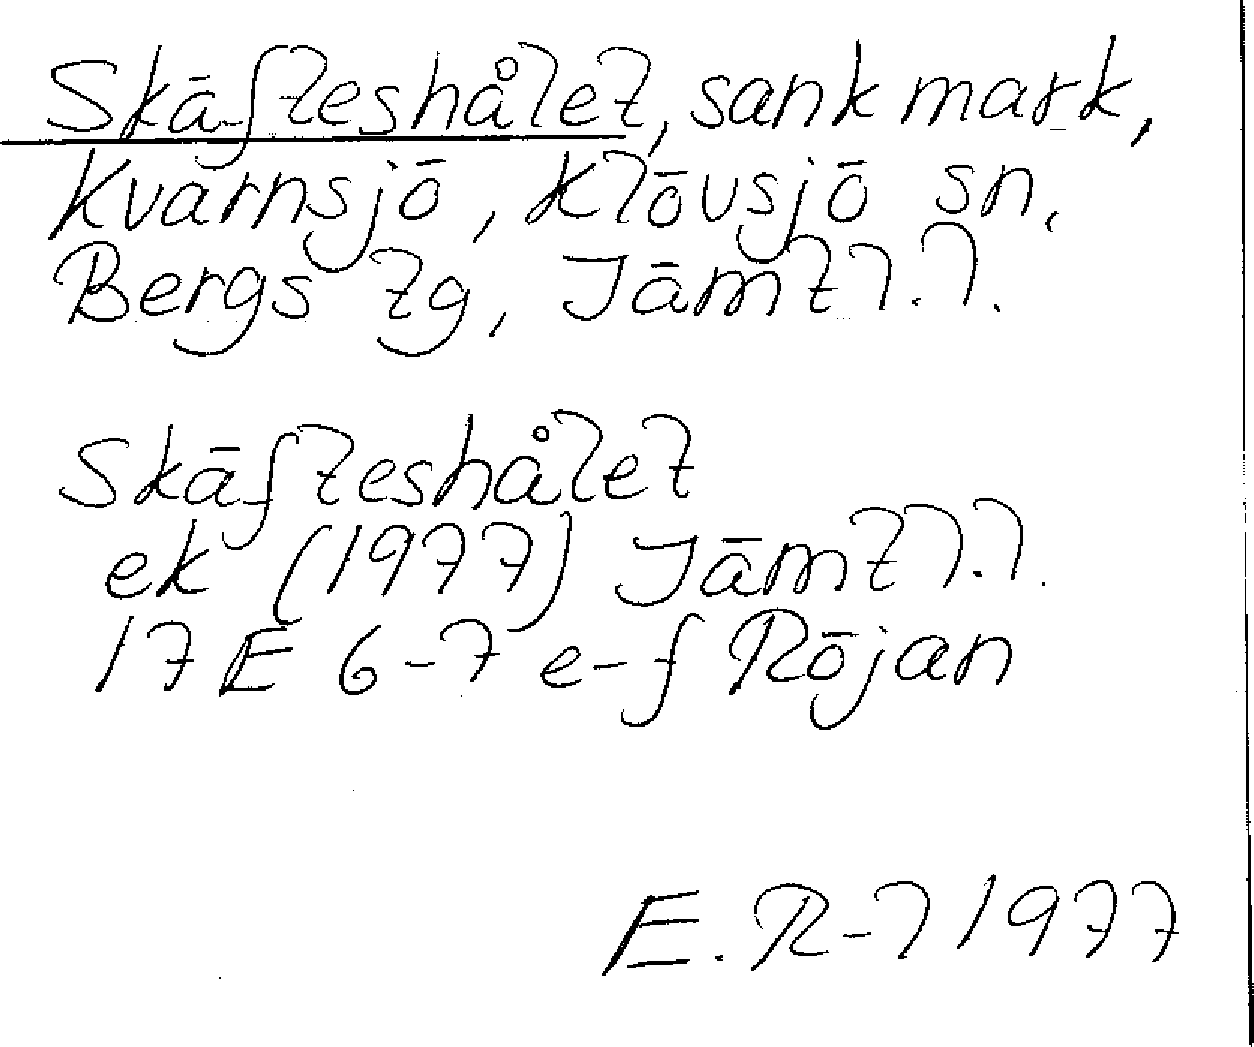 Skäfteshålet, sank mark,
Kvarnsjö, Klövsjö sn,
Bergs tg, Jämtl.l.
Skäfteshålet
ek (1977) Jämtl.l.
17 E 6-7 e-f Röjan
E. R-l 1977